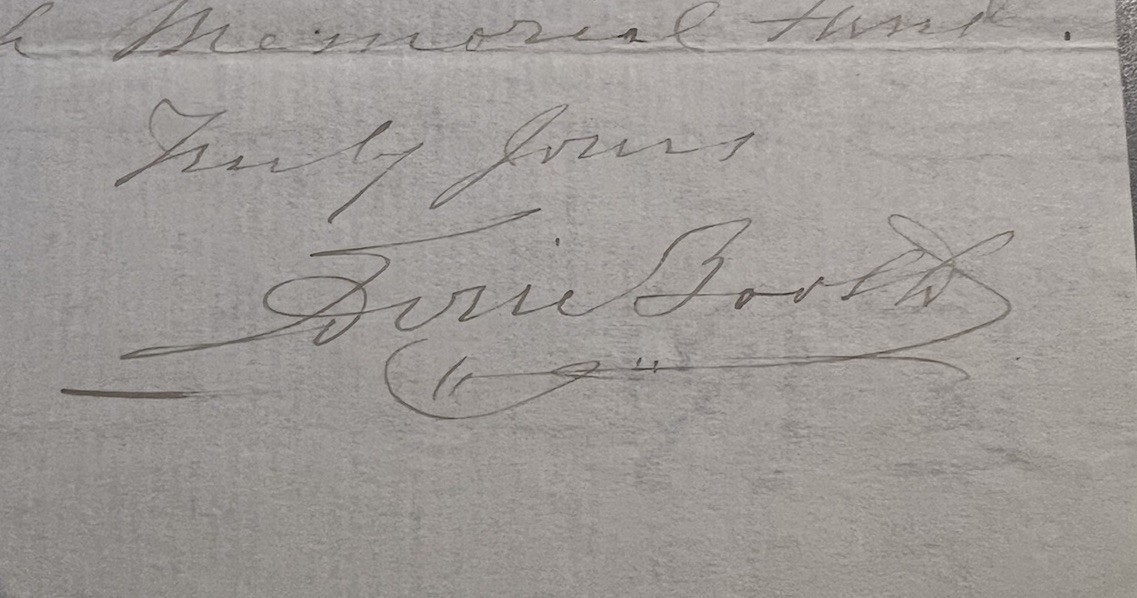 h Memorial Fund.
Truly Yours
Booth